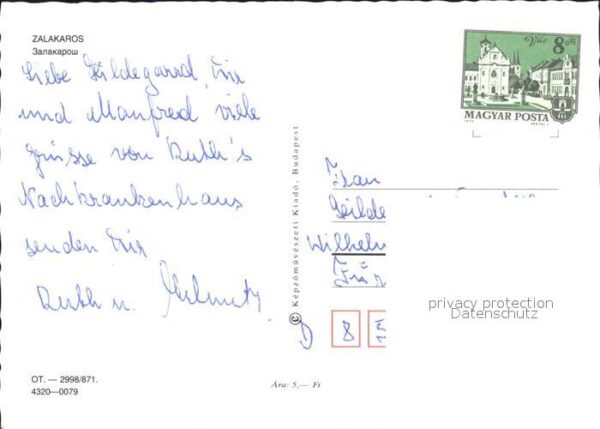 ZALAKAROS
Залакарош
Liebe Hildegarrd, Dir
und Manfred, viele
Grüsse von Ruth's
Nachkrankenhaus
senden Dir
Ruth u. Helmut
Vác 8 Ft
MAGYAR POSTA
© Képzőművészeti Kiadó, Budapest
Frau
Wilhelm
D 8
privacy protection
Datenschutz
OT. — 2998/871.
4320—0079
Ára: 5,— Ft